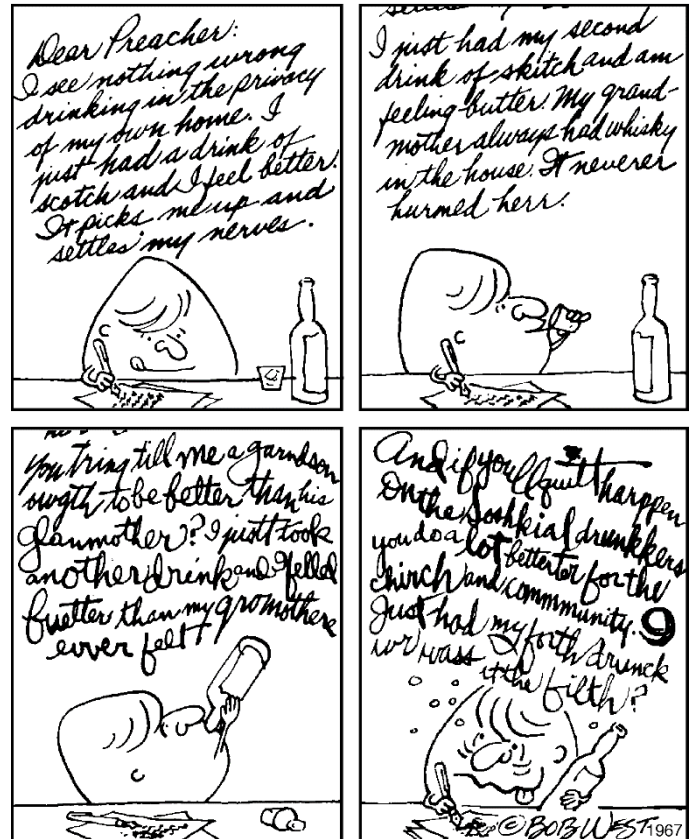 Dear Preacher:
I see nothing wrong
drinking in the privacy
of my own home. I
just had a drink of
scotch and I feel better.
It picks me up and
settles my nerves.
I just had my second
drink of skitch and am
feeling butter. My grand-
mother always had whisky
in the house. It neverer
hurmed herr.
you tring till me a garndson
owgth to be better than his
glanmother? I justt took
another drink and I felled
fuetter than my gromothere
ewer feltt
And if you'll quitt harppen
on the soshkial drunkkers
you do a lot betterter for the
chirch and commmunity.
I
Just had my forth drunck
wr wass it the filth?
© BOB WEST 1967